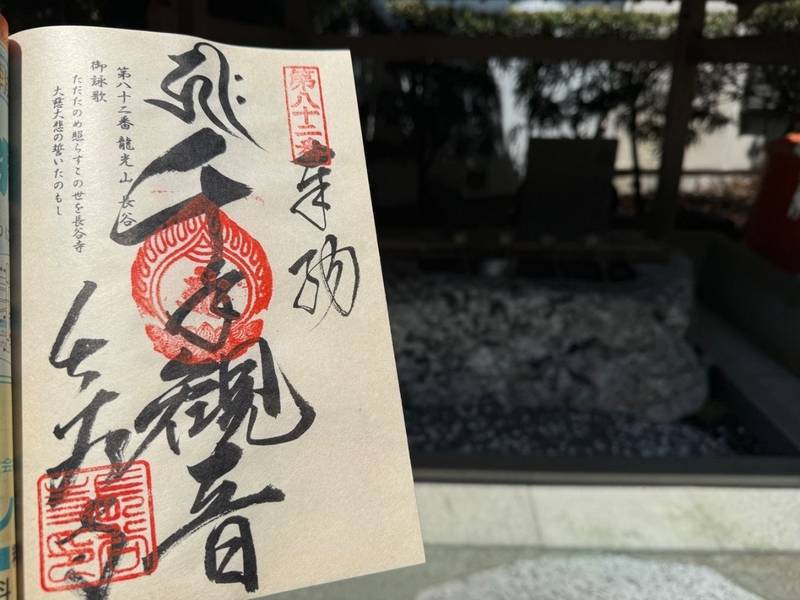 第八十二番
奉納
千手観音
第八十二番 龍光山 長谷
御詠歌
ただたのめ照らすこの世を長谷寺
大慈大悲の誓いたのもし
長谷寺